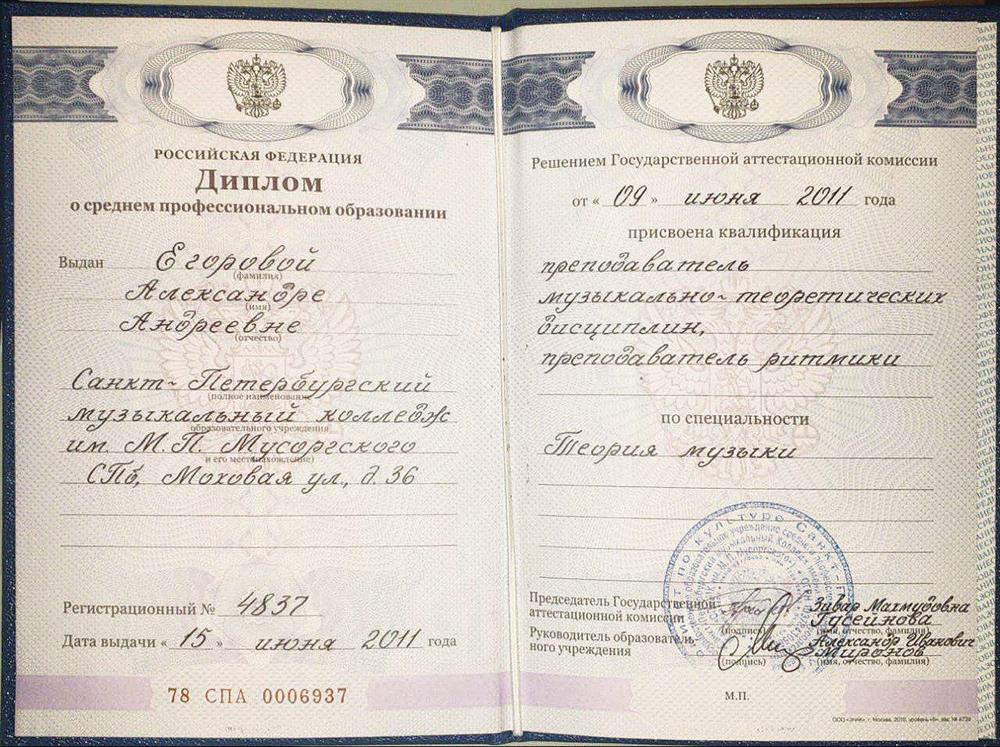 РОССИЙСКАЯ ФЕДЕРАЦИЯ
Диплом
о среднем профессиональном образовании
Выдан Егоровой
(фамилия)
Александре
(имя)
Андреевне
(отчество)
Санкт-Петербургский
(полное наименование
музыкальный колледж
образовательного учреждения
им. М.П. Мусоргского
и его местонахождение)
СПб, Моховая ул., д. 36
Регистрационный № 4837
Дата выдачи « 15 » июня 2011 года
78 СПА 0006937
Решением Государственной аттестационной комиссии
от « 09 » июня 2011 года
присвоена квалификация
преподаватель
музыкально-теоретических
дисциплин,
преподаватель ритмики
по специальности
Теория музыки
Председатель Государственной
аттестационной комиссии
Зивар Махмудовна
Гусейнова
(подпись) (имя, отчество, фамилия)
Руководитель образователь-
ного учреждения
Александр Иванович
Миронов
(подпись) (имя, отчество, фамилия)
М.П.